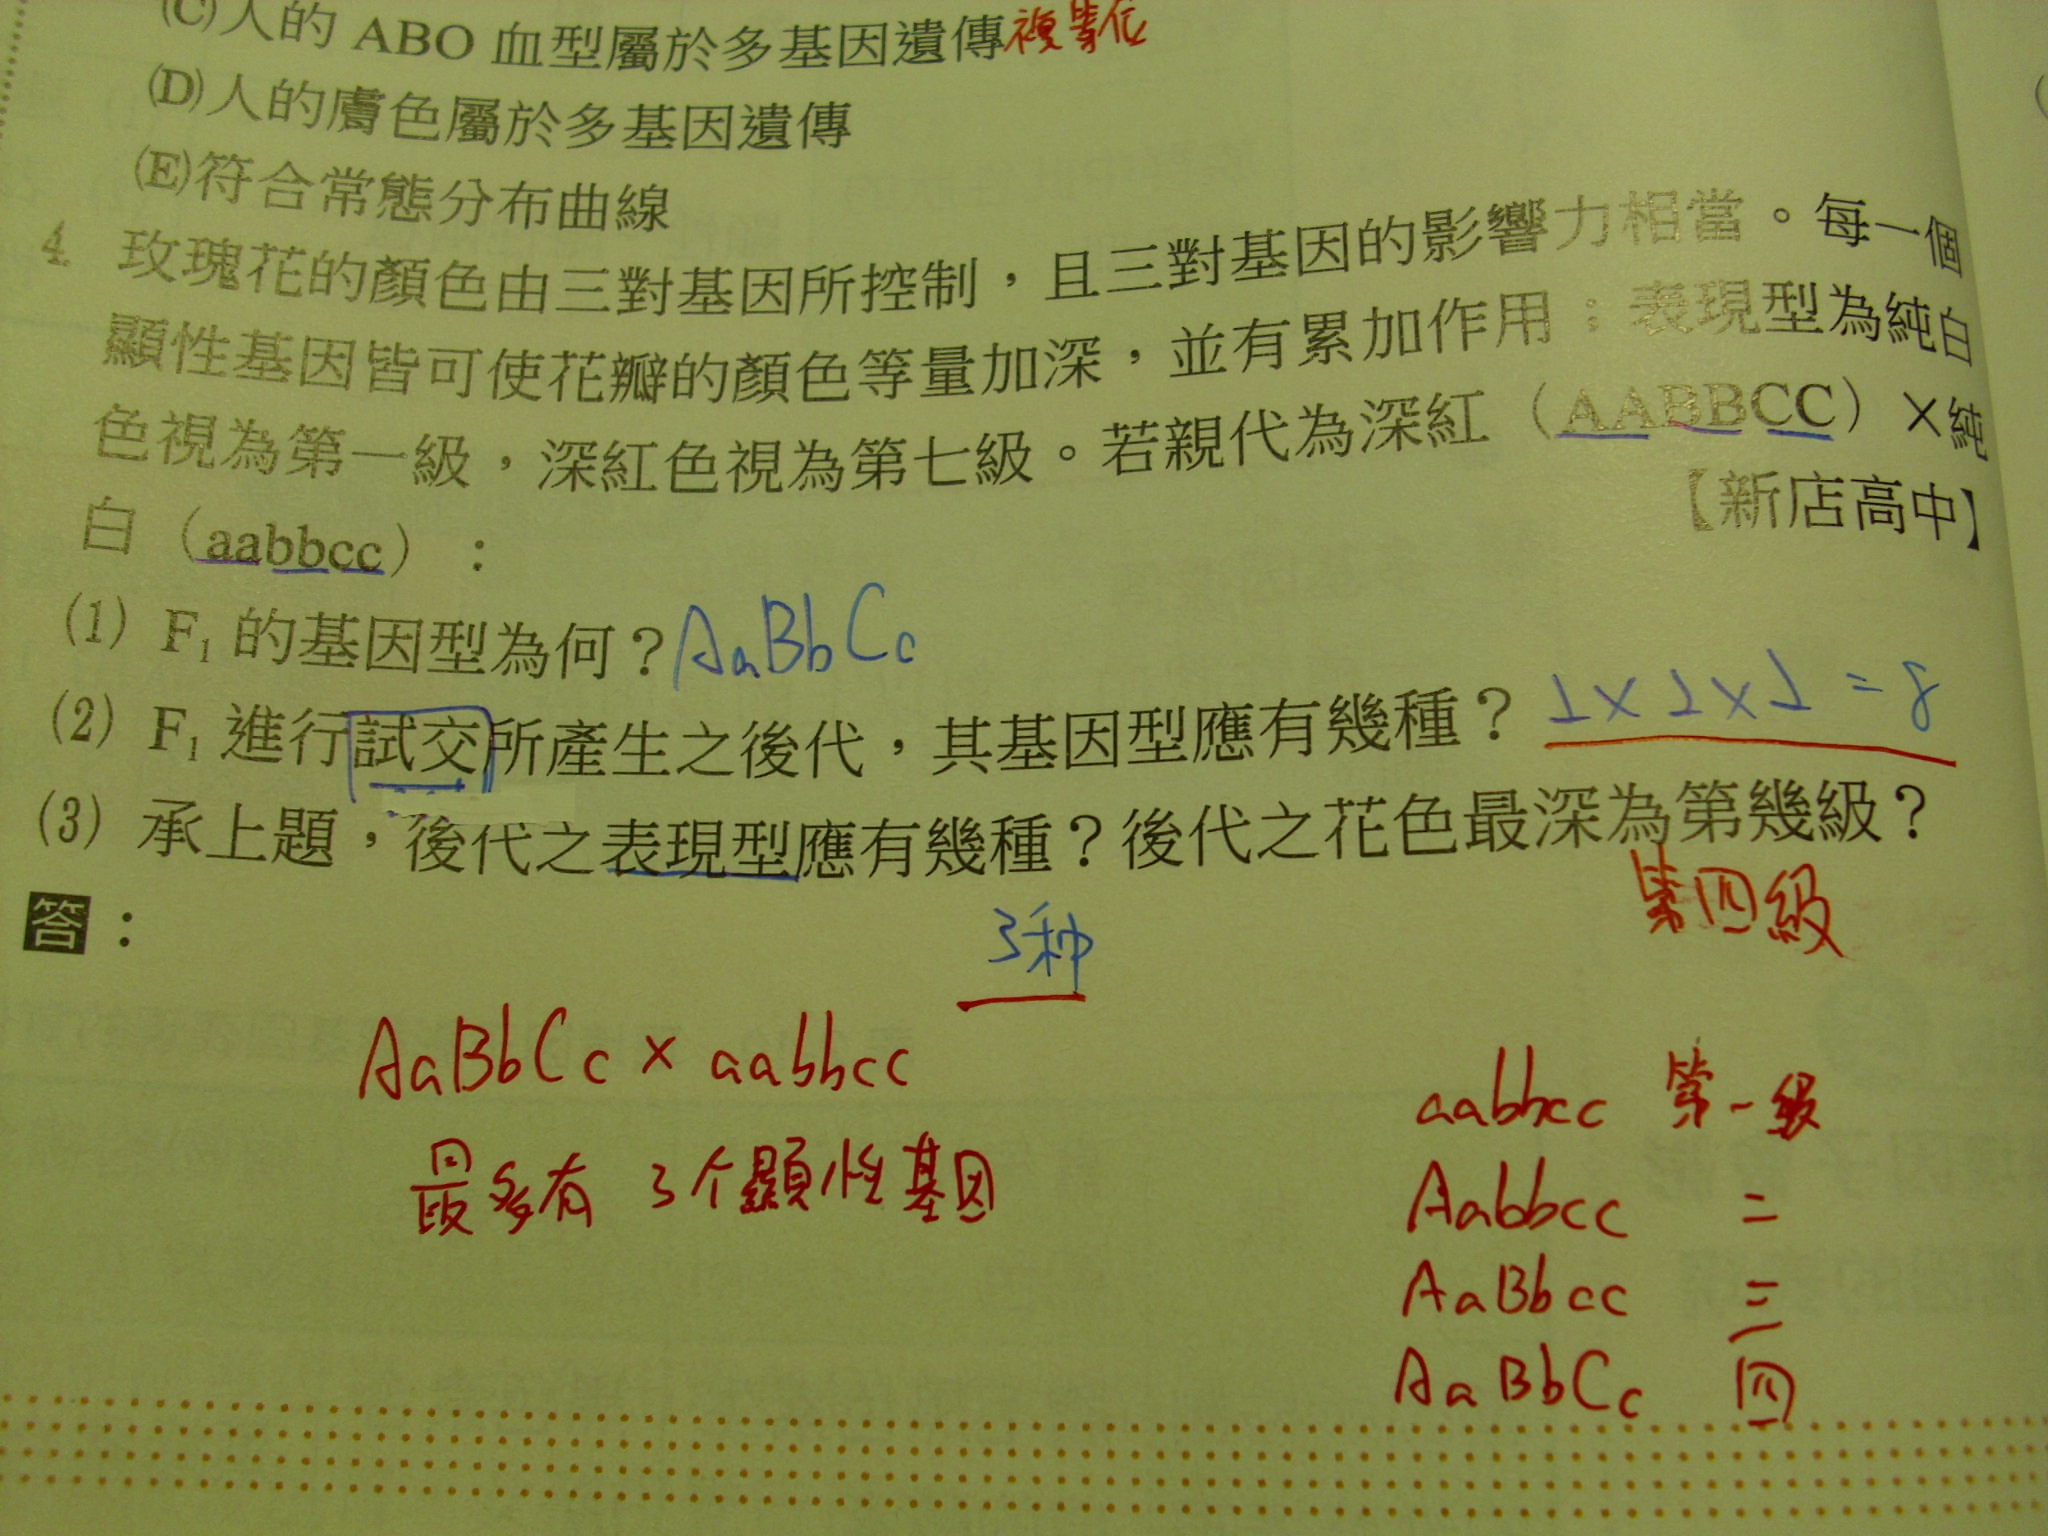 (C)人的 ABO 血型屬於多基因遺傳 複等位
(D)人的膚色屬於多基因遺傳
(E)符合常態分布曲線
4. 玫瑰花的顏色由三對基因所控制，且三對基因的影響力相當。每一個
顯性基因皆可使花瓣的顏色等量加深，並有累加作用；表現型為純白
色視為第一級，深紅色視為第七級。若親代為深紅（AABBCC）×純
白（aabbcc）：
【新店高中】
(1) F₁ 的基因型為何？AaBbCc
(2) F₁ 進行試交所產生之後代，其基因型應有幾種？2×2×2=8
(3) 承上題，後代之表現型應有幾種？後代之花色最深為第幾級？
第四級
答：
3种
AaBbCc × aabbcc
最多有 3个顯性基因
aabbcc 第一級
Aabbcc 二
AaBbcc 三
AaBbCc 四